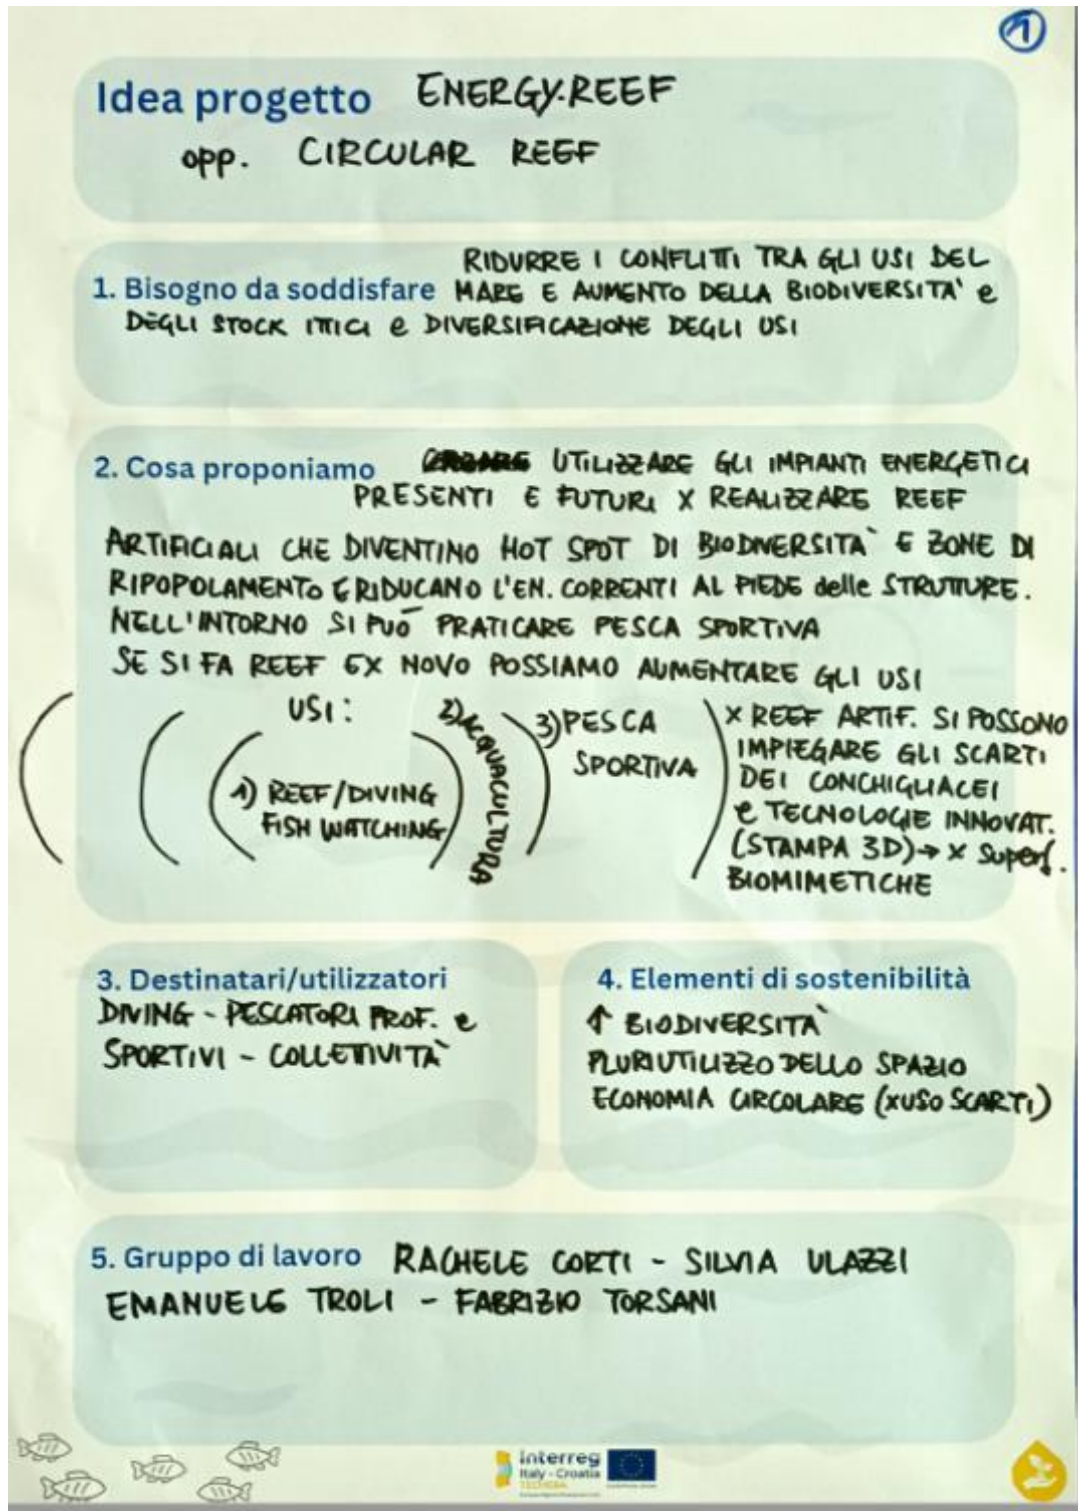 1
Idea progetto ENERGY.REEF
opp. CIRCULAR REEF
RIDURRE I CONFLITTI TRA GLI USI DEL
1. Bisogno da soddisfare MARE E AUMENTO DELLA BIODIVERSITA' e
DEGLI STOCK ITTICI e DIVERSIFICAZIONE DEGLI USI
2. Cosa proponiamo UTILIZZARE GLI IMPIANTI ENERGETICI
PRESENTI E FUTURI X REALIZZARE REEF
ARTIFICIALI CHE DIVENTINO HOT SPOT DI BIODIVERSITA' E ZONE DI
RIPOPOLAMENTO E RIDUCANO L'EN. CORRENTI AL PIEDE delle STRUTTURE.
NELL'INTORNO SI PUÒ PRATICARE PESCA SPORTIVA
SE SI FA REEF EX NOVO POSSIAMO AUMENTARE GLI USI
USI:
1) REEF/DIVING
FISH WATCHING
2) ACQUACULTURA
3) PESCA
SPORTIVA
X REEF ARTIF. SI POSSONO
IMPIEGARE GLI SCARTI
DEI CONCHIGLIACEI
e TECNOLOGIE INNOVAT.
(STAMPA 3D) → X Superf.
BIOMIMETICHE
3. Destinatari/utilizzatori
DIVING - PESCATORI PROF. e
SPORTIVI - COLLETTIVITÀ
4. Elementi di sostenibilità
↑ BIODIVERSITA'
PLURIUTILIZZO DELLO SPAZIO
ECONOMIA CIRCOLARE (X USO SCARTI)
5. Gruppo di lavoro RACHELE CORTI - SILVIA ULAZZI
EMANUELE TROLI - FABRIZIO TORSANI
Interreg
Italy - Croatia
TECHERA